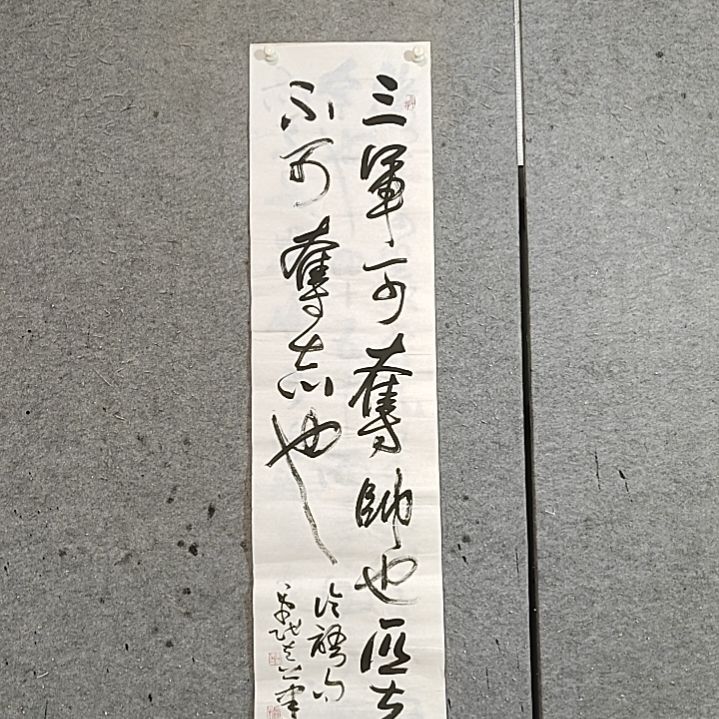 三軍可奪帥也匹夫
不可奪志也
论語句